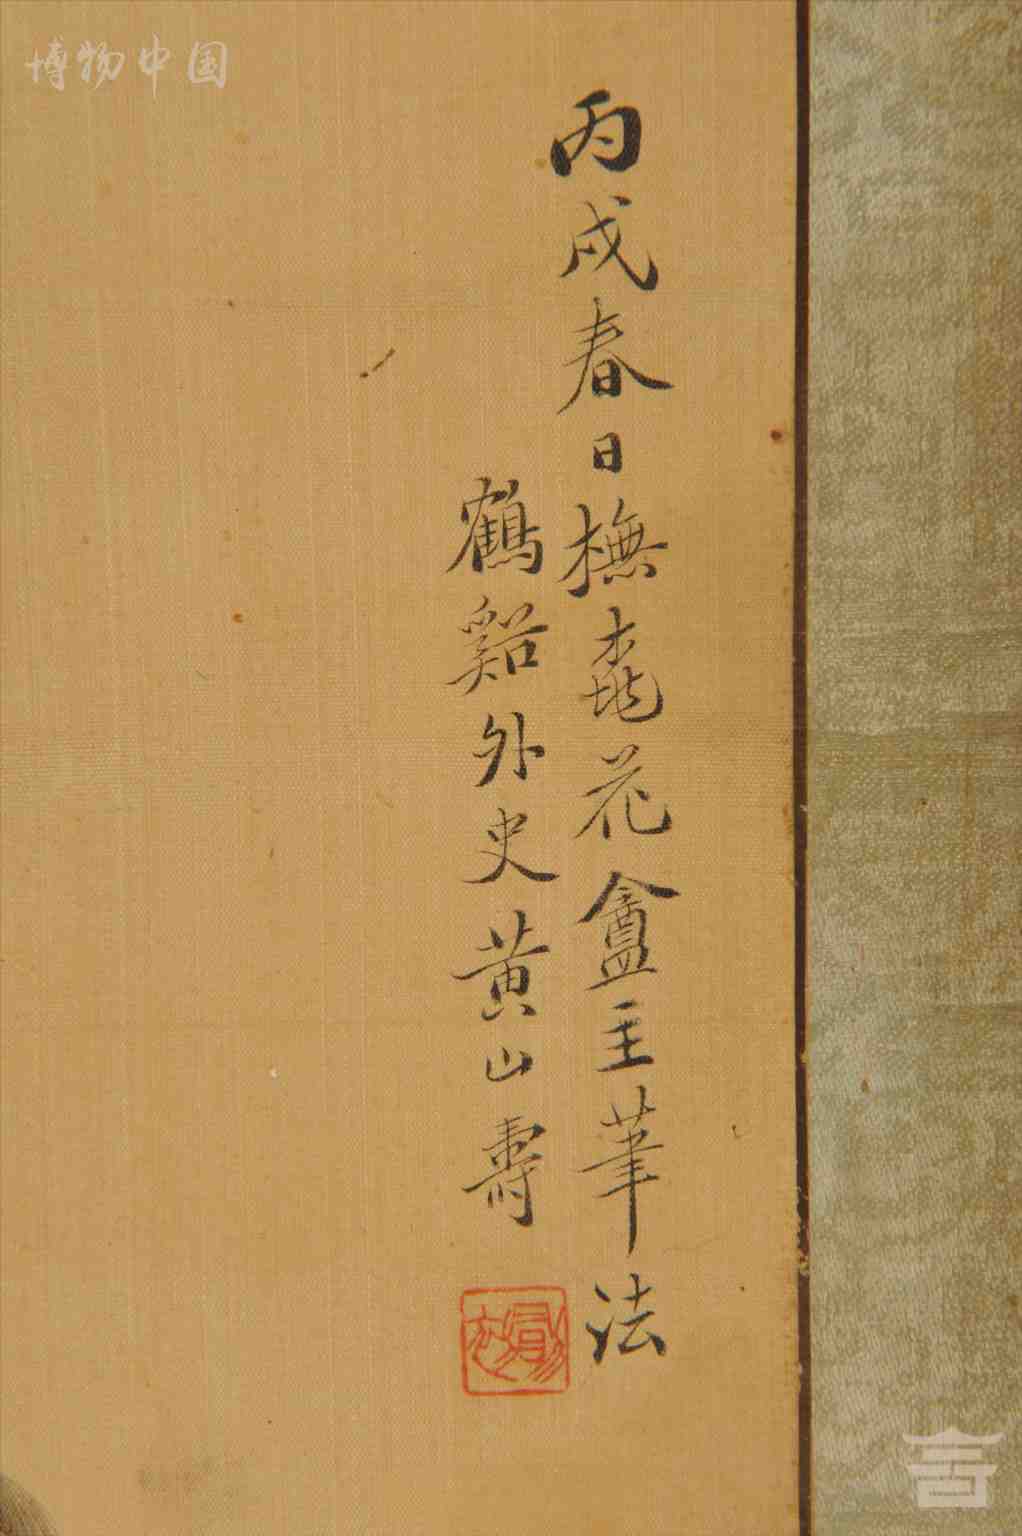 博物中国
丙戌春日橅桃花盦主筆法
鶴谿外史黃山壽